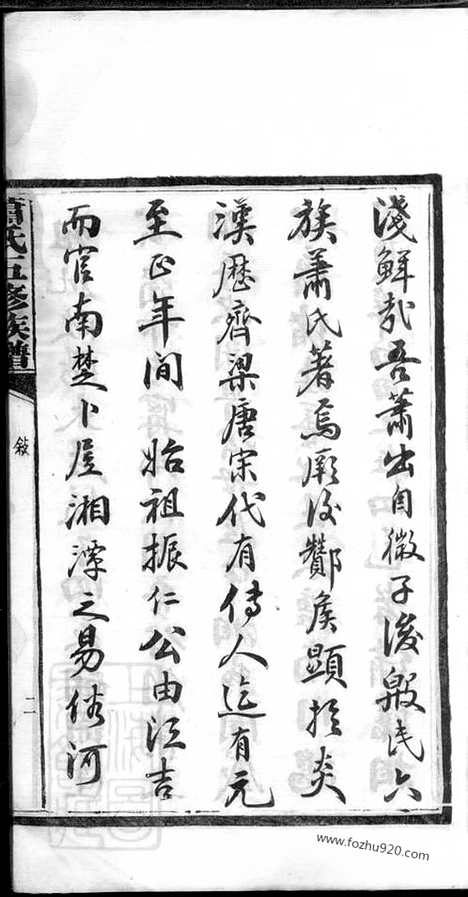 淺鮮哉吾蕭出自微子後殷民六
族蕭氏著焉厥後酇侯顯於炎
漢歷齊梁唐宋代有傳人迄有元
至正年間 始祖振仁公由江吉
而官南楚卜居湘潭之易俗河
蕭氏五修族譜
敍
二
www.fozhu920.com